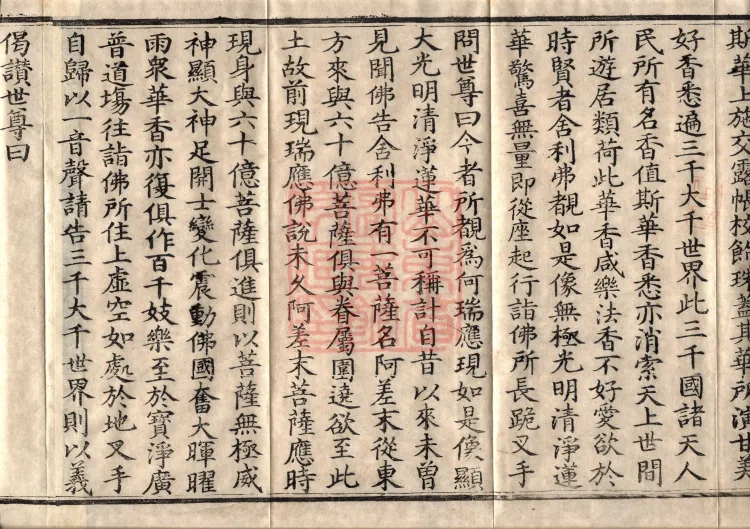 斯華上施交露帳校飾珠蓋其華所演甘美
好香悉遍三千大千世界此三千國諸天人
民所有名香值斯華香悉亦消索天上世間
所遊居類荷此華香咸樂法香不好愛欲於
時賢者舍利弗覩如是像無極光明清淨蓮
華驚喜無量即從座起行詣佛所長跪叉手
問世尊曰今者所覩為何瑞應現如是像顯
大光明清淨蓮華不可稱計自昔以來未曾
見聞佛告舍利弗有一菩薩名阿差末從東
方來與六十億菩薩俱與眷屬圍遶欲至此
土故前現瑞應佛說未久阿差末菩薩應時
現身與六十億菩薩俱進則以菩薩無極威
神顯大神足開士變化震動佛國奮大暉曜
雨衆華香亦復俱作百千妓樂至於寶淨廣
普道場往詣佛所住上虛空如處於地叉手
自歸以一音聲請告三千大千世界則以義
偈讚世尊曰